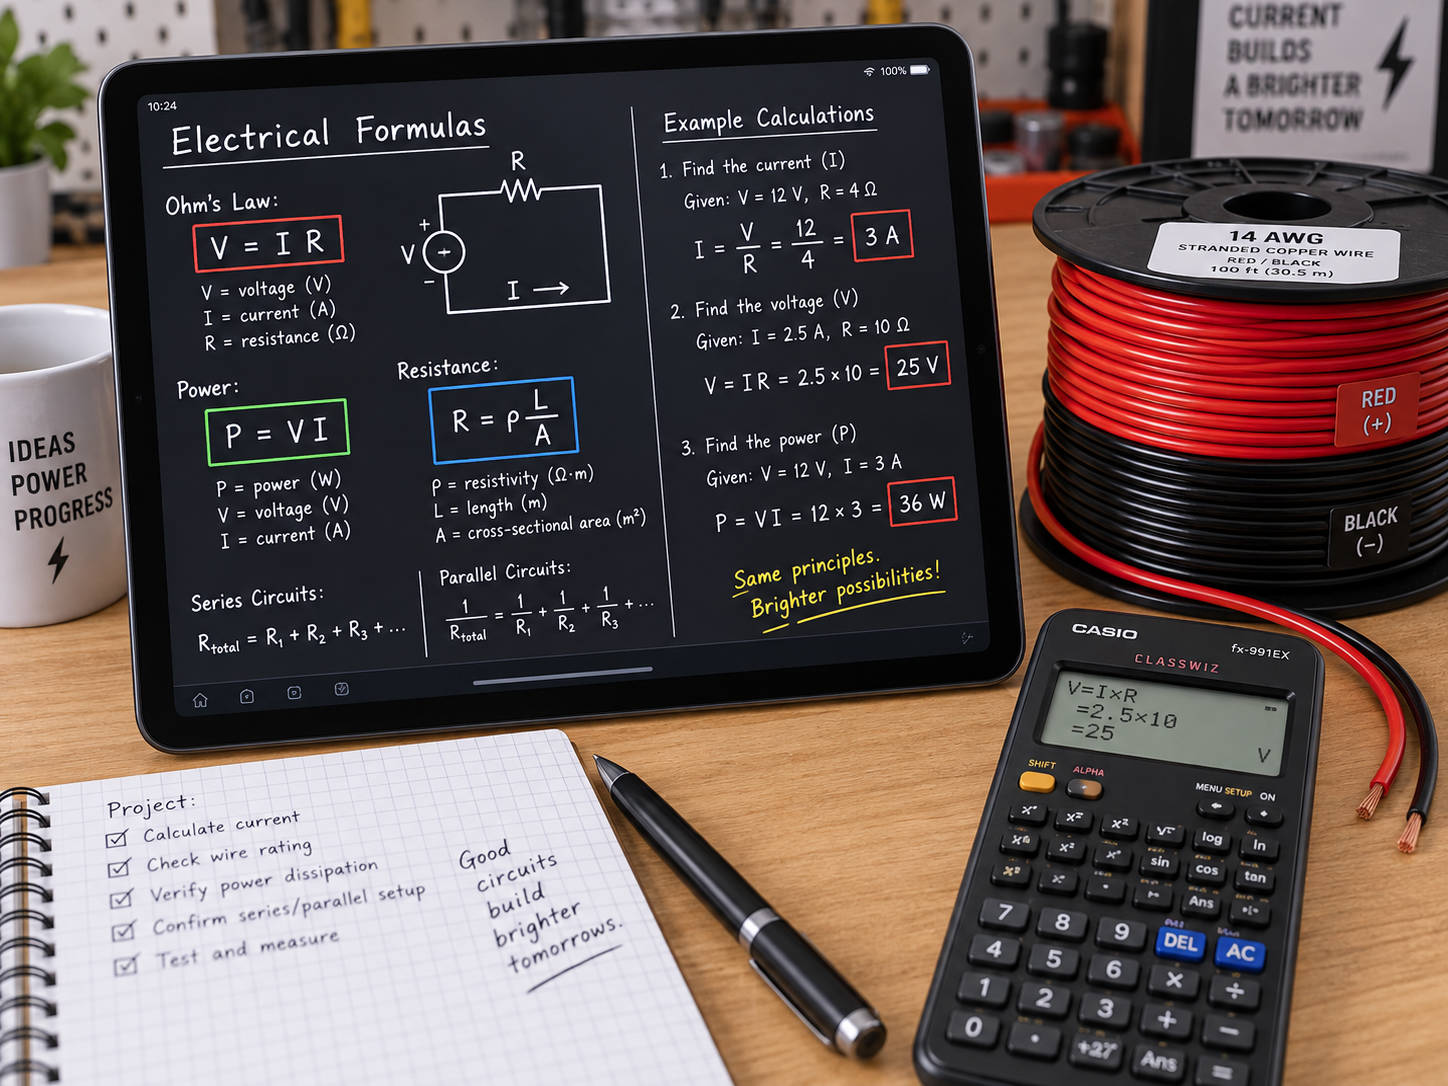 10:24
100%
Electrical Formulas
Ohm's Law:
V = I R
V = voltage (V)
I = current (A)
R = resistance (Ω)
R
+
V
−
I →
Power:
P = V I
P = power (W)
V = voltage (V)
I = current (A)
Resistance:
R = ρ L/A
ρ = resistivity (Ω·m)
L = length (m)
A = cross-sectional area (m²)
Series Circuits:
Rtotal = R1 + R2 + R3 + ...
Parallel Circuits:
1/Rtotal = 1/R1 + 1/R2 + 1/R3 + ...
Example Calculations
1. Find the current (I)
Given: V = 12 V, R = 4 Ω
I = V/R = 12/4 = 3 A
2. Find the voltage (V)
Given: I = 2.5 A, R = 10 Ω
V = I R = 2.5 × 10 = 25 V
3. Find the power (P)
Given: V = 12 V, I = 3 A
P = V I = 12 × 3 = 36 W
Same principles.
Brighter possibilities!
CURRENT
BUILDS
A BRIGHTER
TOMORROW
14 AWG
STRANDED COPPER WIRE
RED / BLACK
100 ft (30.5 m)
RED
(+)
BLACK
(−)
IDEAS
POWER
PROGRESS
Project:
☑ Calculate current
☑ Check wire rating
☑ Verify power dissipation
☑ Confirm series/parallel setup
☑ Test and measure
Good
circuits
build
brighter
tomorrows.
CASIO
fx-991EX
CLASSWIZ
V=I×R
=2.5×10
=25
V
SHIFT
ALPHA
MENU SETUP ON
log
ln
sin
cos
tan
Ans
7 8 9 DEL AC
4 5 6 × ÷
1 2 3 + −
0 · Ans =